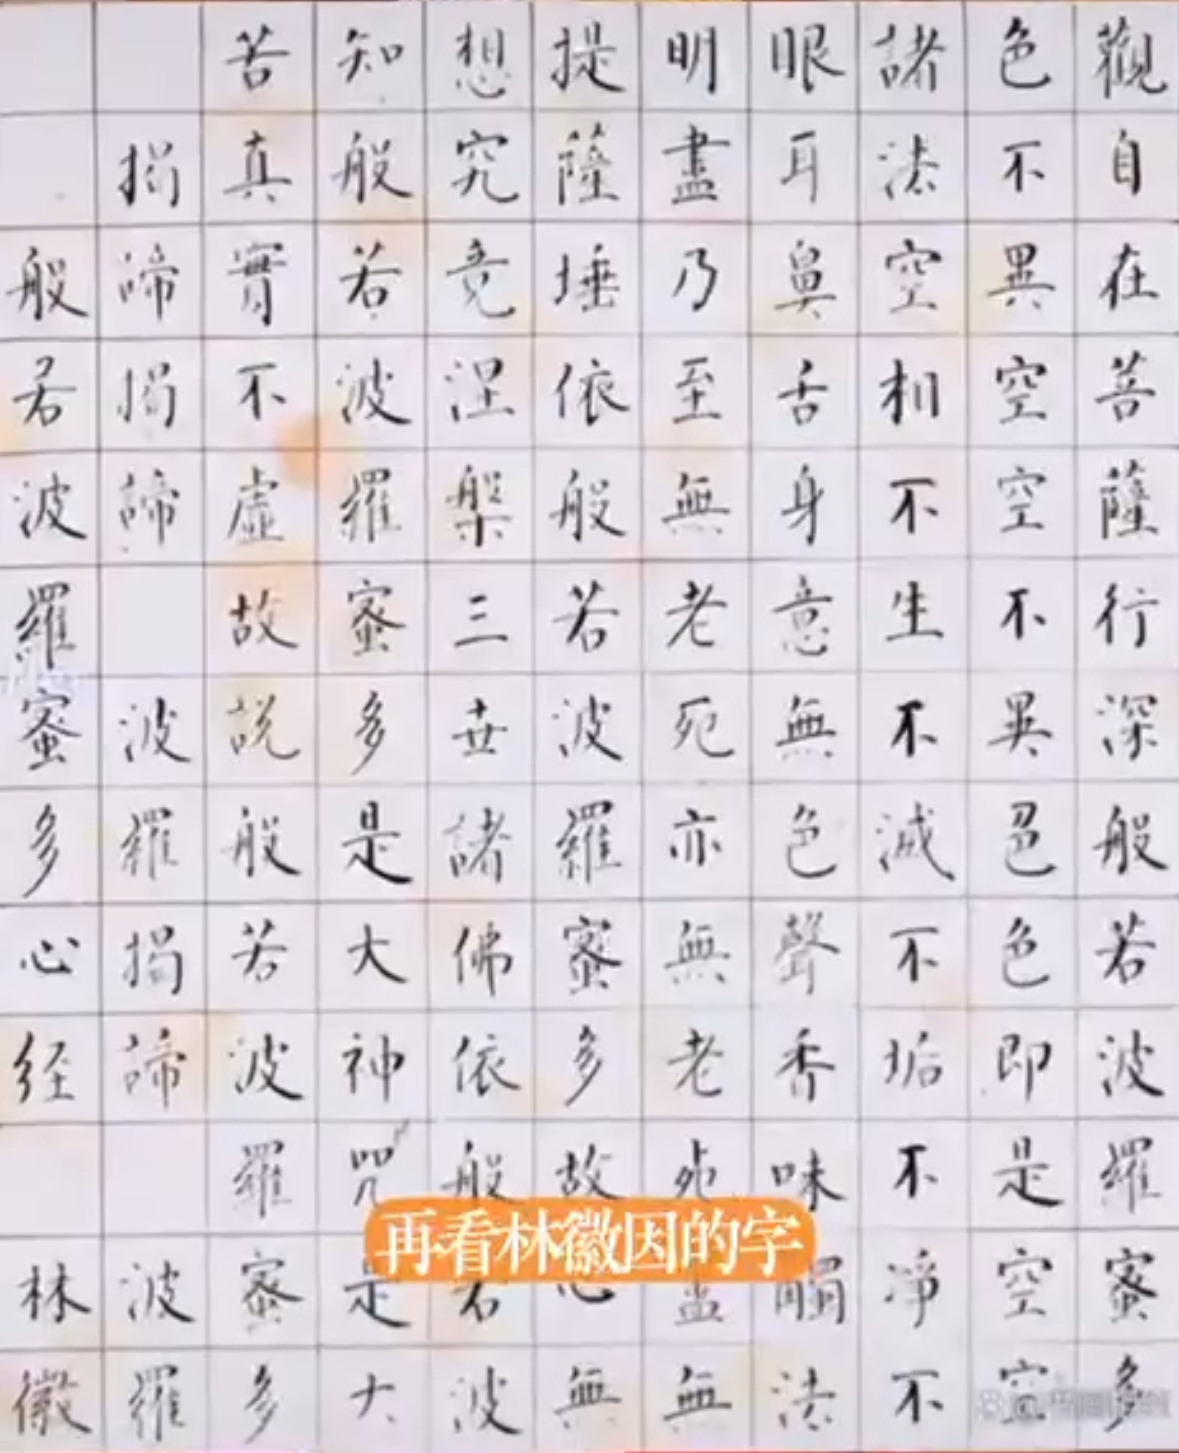 觀自在菩薩行深般若波羅蜜多
色不異空空不異色色即是空空
諸法空相不生不滅不垢不淨不
眼耳鼻舌身意無色聲香味觸法
明盡乃至無老死亦無老死盡無
提薩埵依般若波羅蜜多故心無
想究竟涅槃三世諸佛依般若波
知般若波羅蜜多是大神咒是大
苦真實不虛故説般若波羅蜜多
揭諦揭諦 波羅揭諦 波羅
般若波羅蜜多心経 林徽
再看林徽因的字